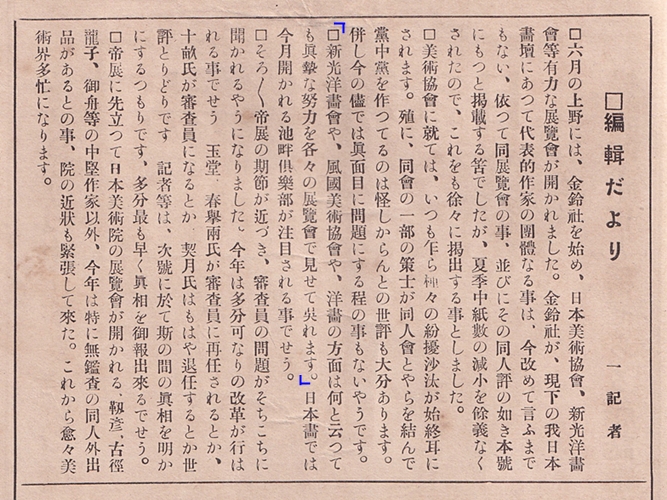 □編輯だより
一記者
□六月の上野には、金鈴社を始め、日本美術協會、新光洋畫
會等有力な展覽會が開かれました。金鈴社が、現下の我日本
畫壇にあつて代表的作家の團體なる事は、今改めて言ふまで
もない、依つて同展覽會の事、並びにその同人評の如き本號
にもつと掲載する筈でしたが、夏季中紙數の減小を餘義なく
されたので、これをも徐々に掲出する事としました。
□美術協會に就ては、いつも乍ら種々の紛擾沙汰が始終耳に
されます。殖に、同會の一部の策士が同人會とやらを結んで
黨中黨を作つてるのは怪しからんとの世評も大分あります。
併し今の儘では眞面目に問題にする程の事もないやうです。
□新光洋畫會や、風國美術協會や、洋畫の方面は何と云つて
も眞摯な努力を各々の展覽會で見せて吳れます。日本畫では
今月開かれる池畔俱樂部が注目される事でせう。
□そろ〳〵帝展の期節が近づき、審査員の問題がそちこちに
聞かれるやうになりました。今年は多分可なりの改革が行は
れる事でせう 玉堂、春擧兩氏が審査員に再任されるとか、
十畝氏が審査員になるとか 契月氏はもはや退任するとか世
評とりどりです 記者等は、次號に於て斯の間の眞相を明か
にするつもりです、多分最も早く眞相を御報出來るでせう。
□帝展に先立つて日本美術院の展覽會が開かれる、靱彦、古徑
龍子、御舟等の中堅作家以外、今年は特に無鑑査の同人外出
品があるとの事、院の近狀も緊張して來た。これから愈々美
術界多忙になります。